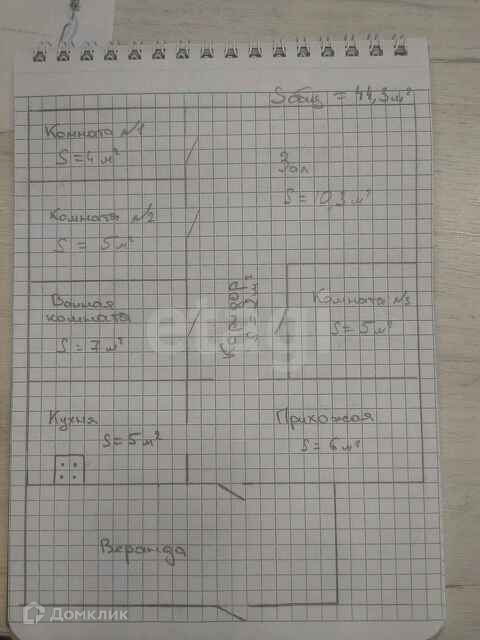 Sобщ = 44,3 м²
Комната №1
S = 4 м²
Зал
S = 10,3 м²
Комната №2
S = 5 м²
Ванная
комната
S = 7 м²
Комната №3
S = 5 м²
Кухня
S = 5 м²
Прихожая
S = 6 м²
Веранда
etagi
Домклик